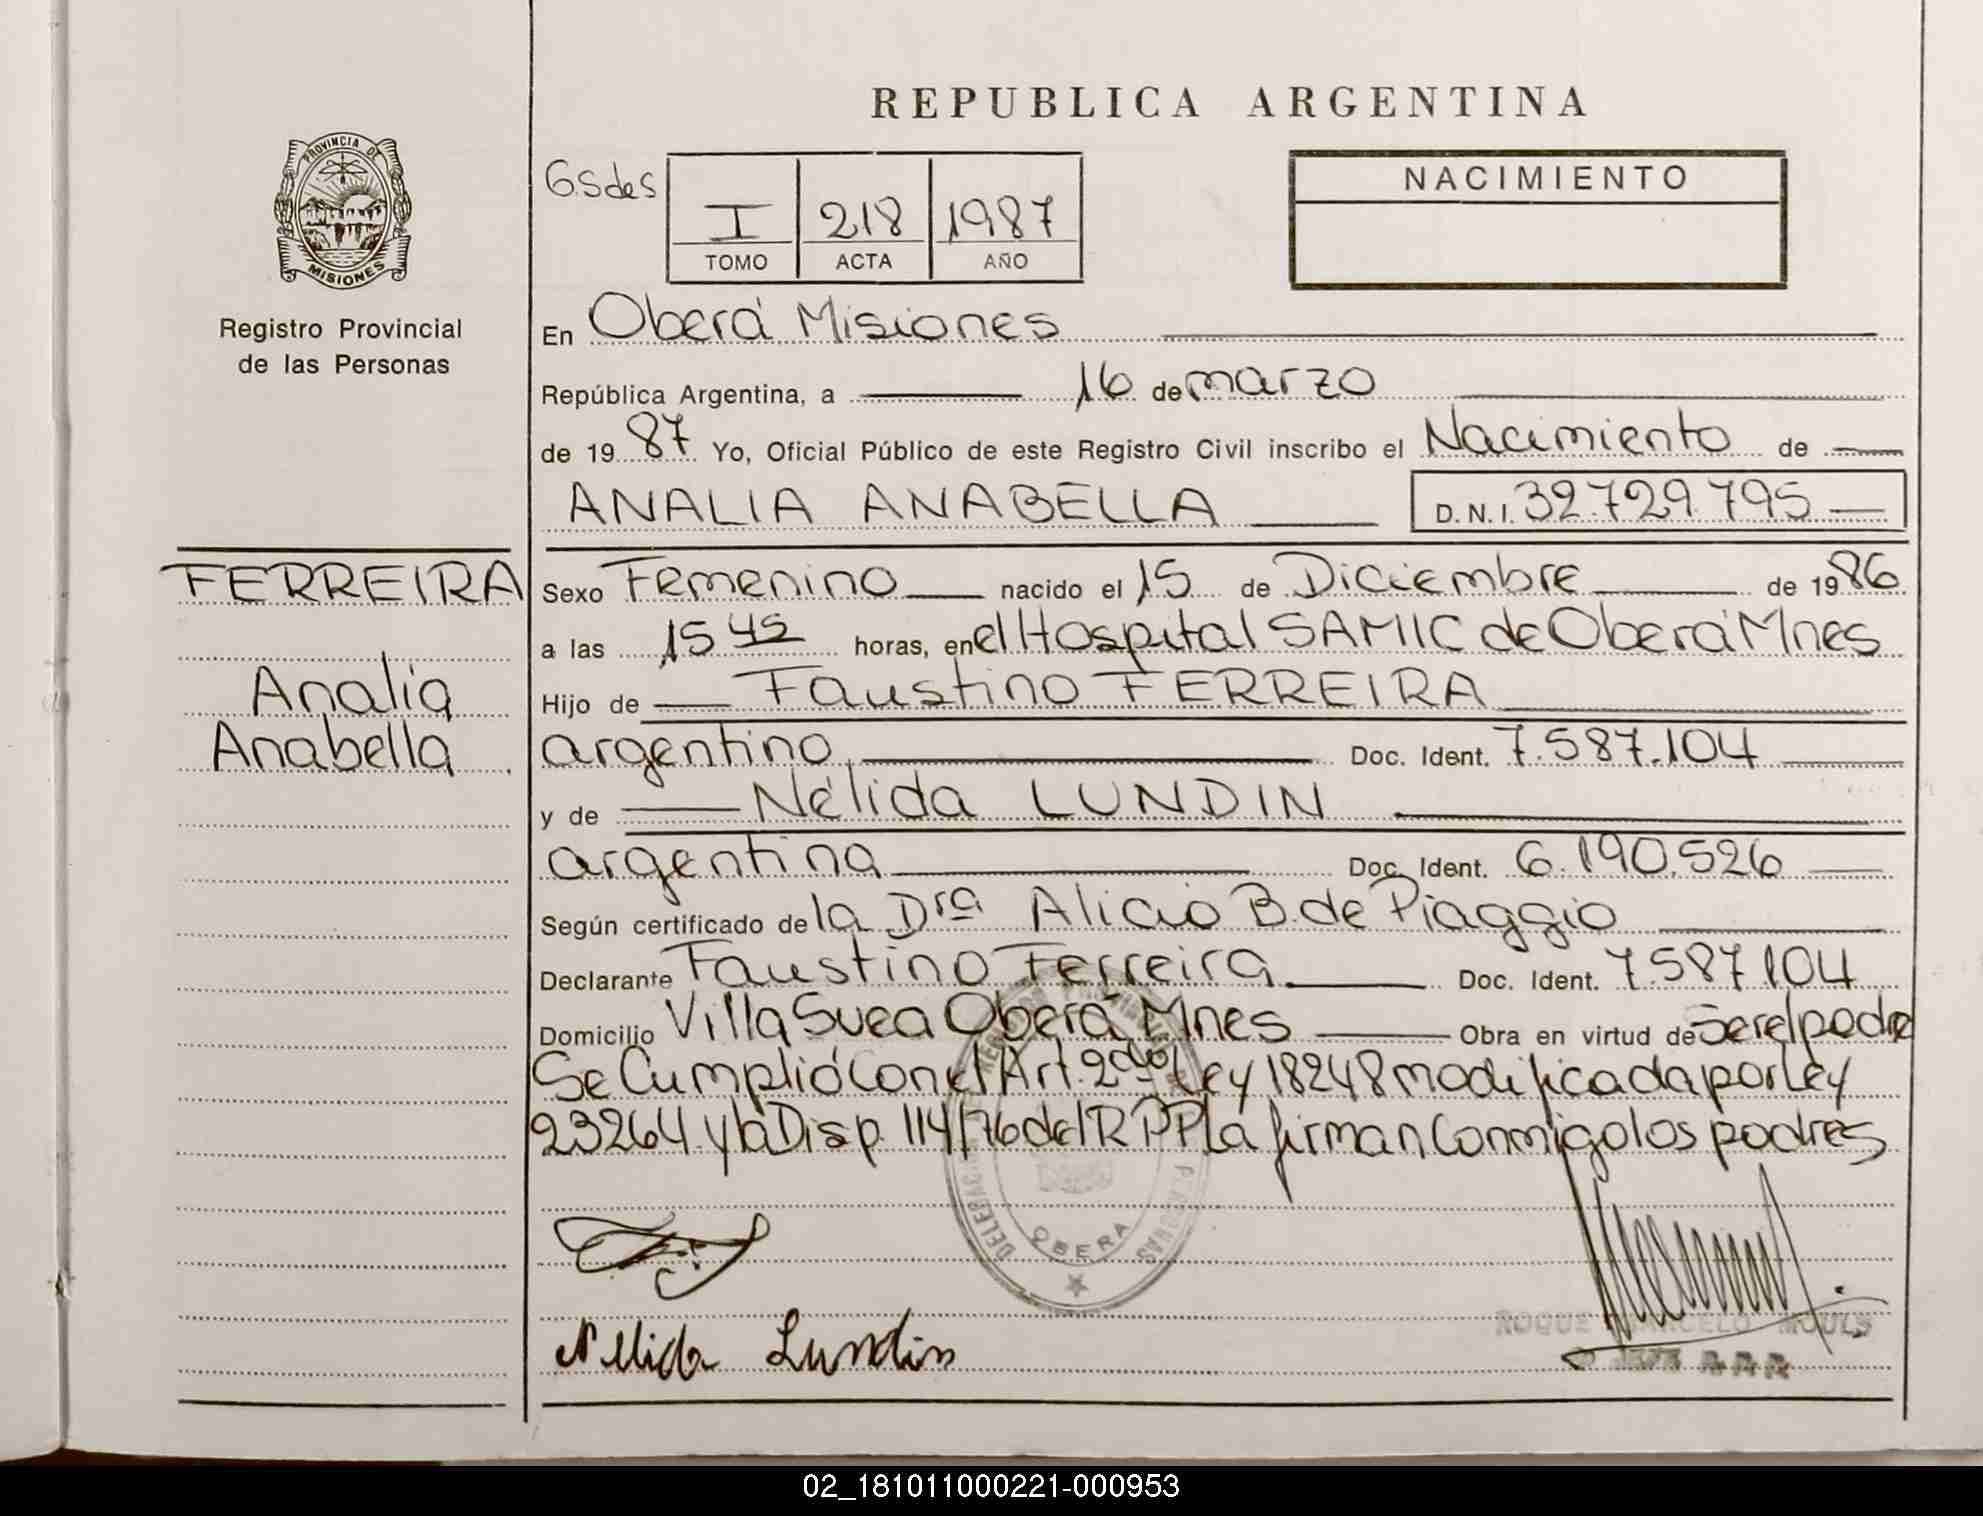 REPUBLICA ARGENTINA
PROVINCIA DE
MISIONES
Registro Provincial
de las Personas
I 218 1987
TOMO ACTA AÑO
NACIMIENTO
En Oberá Misiones
República Argentina, a 16 de marzo
de 1987 Yo, Oficial Público de este Registro Civil inscribo el Nacimiento de
ANALIA ANABELLA D.N.I. 32.729.795
FERREIRA
Analia
Anabella
Sexo Femenino nacido el 15 de Diciembre de 1986
a las 15 45 horas, en el Hospital SAMIC de Oberá Mnes
Hijo de Faustino FERREIRA
argentino Doc. Ident. 7.587.104
y de Nélida LUNDIN
argentina Doc. Ident. 6.190.526
Según certificado de la Dra Alicia B. de Piaggio
Declarante Faustino Ferreira Doc. Ident. 7.587.104
Domicilio Villa Svea Oberá Mnes Obra en virtud de ser el padre
Se Cumplió con el Art. 2do Ley 18248 modificada por Ley
23264 y la Disp. 114/76 del RPP La firman conmigo los padres
OBERA
Nelida Lundin
ROQUE MARCELO MOULS
02_181011000221-000953